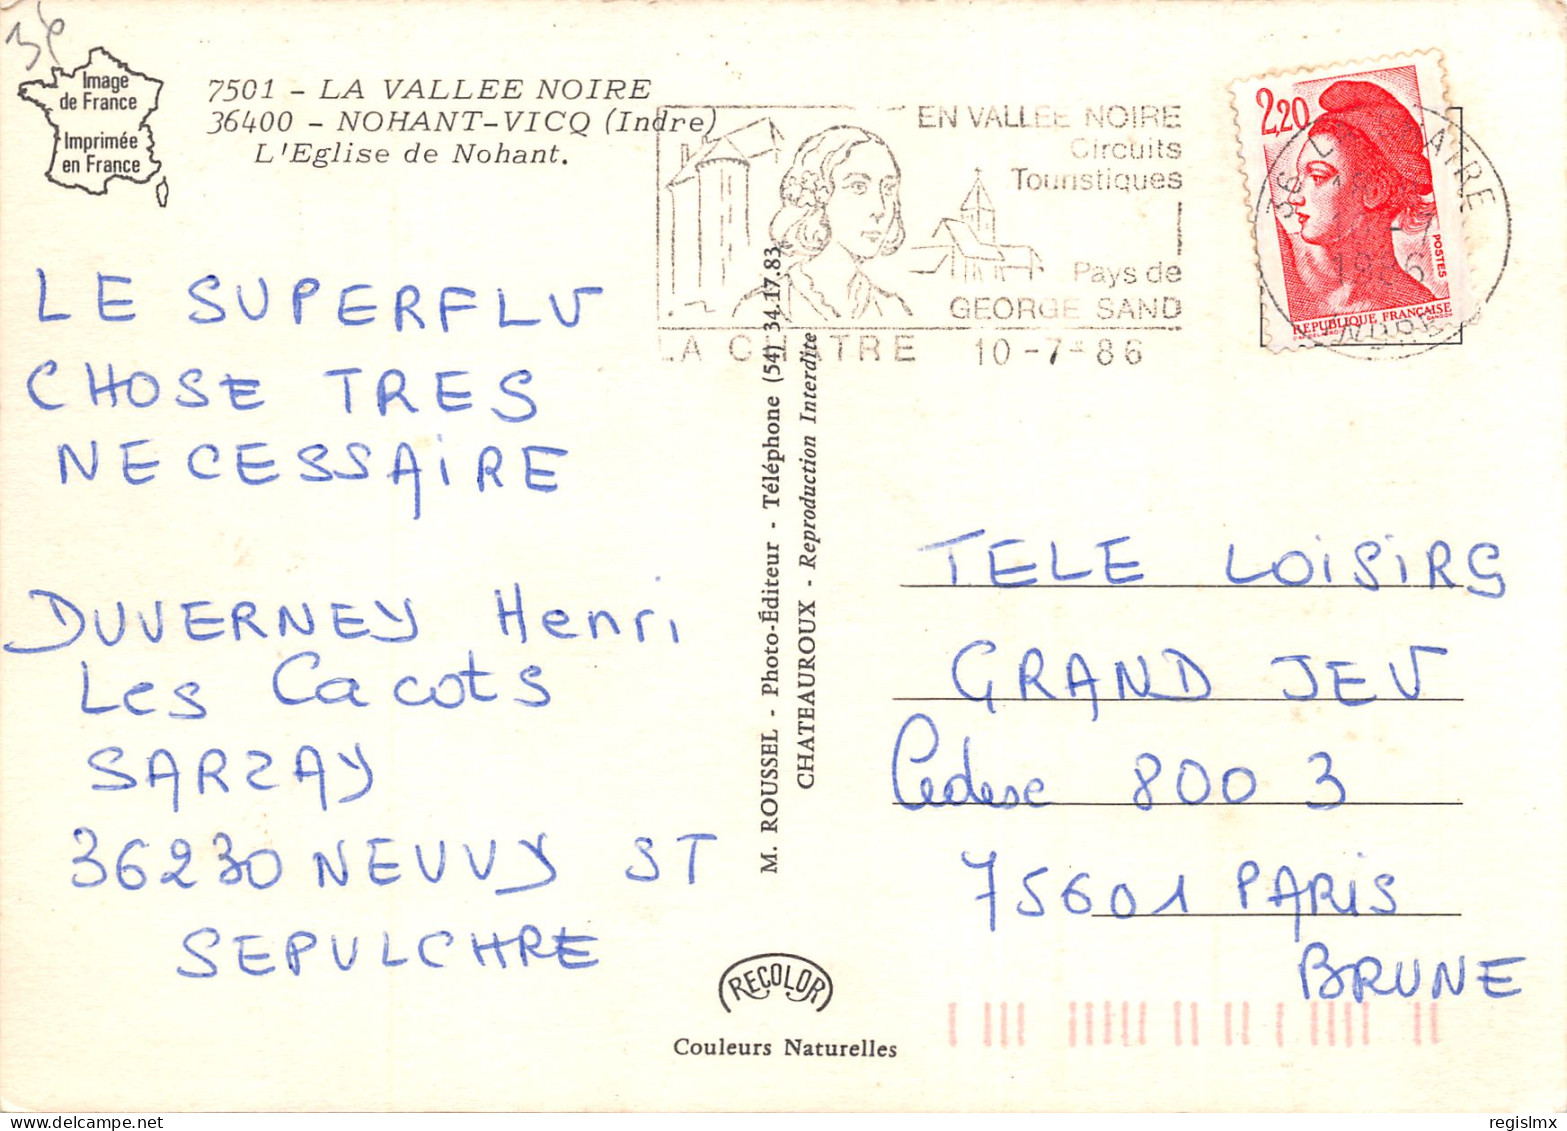 3€
Image
de France
Imprimée
en France
7501 - LA VALLEE NOIRE
36400 - NOHANT-VICQ (Indre)
L'Eglise de Nohant.
EN VALLEE NOIRE
Circuits
Touristiques
Pays de
GEORGE SAND
LA CHATRE 10-7-86
2,20
POSTES
REPUBLIQUE FRANÇAISE
36 LA CHATRE
1986
INDRE
LE SUPERFLU
CHOSE TRES
NECESSAIRE
DUVERNEY Henri
Les Cacots
SARZAY
36230 NEUVY ST
SEPULCHRE
M. ROUSSEL - Photo-Éditeur - Téléphone (54) 34.17.83
CHATEAUROUX - Reproduction Interdite
TELE LOISIRS
GRAND JEU
Cedex 800 3
75601 PARIS
BRUNE
RECOLOR
Couleurs Naturelles
https://www.delcampe.net
regislmx